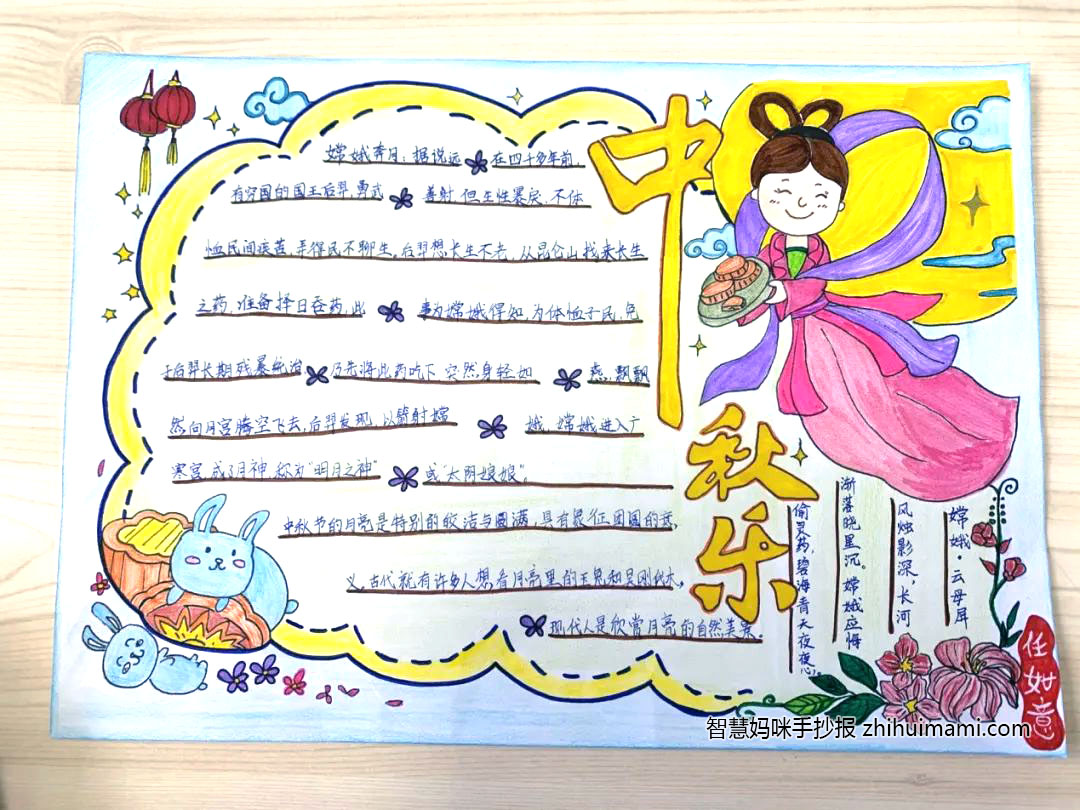 中秋乐
嫦娥奔月：据说远在四千多年前，
有穷国的国王后羿，勇武善射，但生性暴戾，不体
恤民间疾苦，弄得民不聊生。后羿想长生不老，从昆仑山找来长生
之药，准备择日吞药，此事为嫦娥得知，为体恤子民，免
于后羿长期残暴统治乃先将此药吃下突然身轻如燕，飘飘
然向月宫腾空飞去，后羿发现，以箭射嫦娥，嫦娥进入广
寒宫，成了月神，称为“明月之神”或“太阴娘娘”。
中秋节的月亮是特别的皎洁与圆满，具有象征团圆的意
义，古代就有许多人想看月亮里的玉兔和吴刚伐木。
现代人是欣赏月亮的自然美景
嫦娥·云母屏
风烛影深，长河
渐落晓星沉。嫦娥应悔
偷灵药，碧海青天夜夜心。
任如意
智慧妈咪手抄报 zhihuimami.com